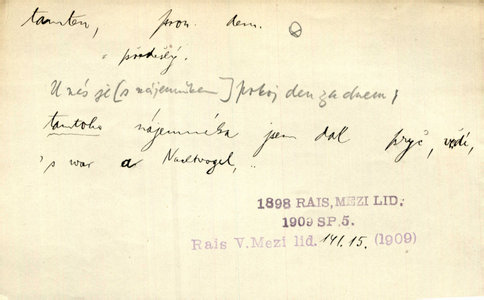 tamten, pron. dem.
„ předešlý.
U nás je [s nájemníkem] pokoj den za dnem,
tamtoho nájemníka jsem dal pryč, vědí,
's war a Nachtvogel,
1898 RAIS, MEZI LID.
1909 SP. 5.
Rais V. Mezi lid. 141.15. (1909)